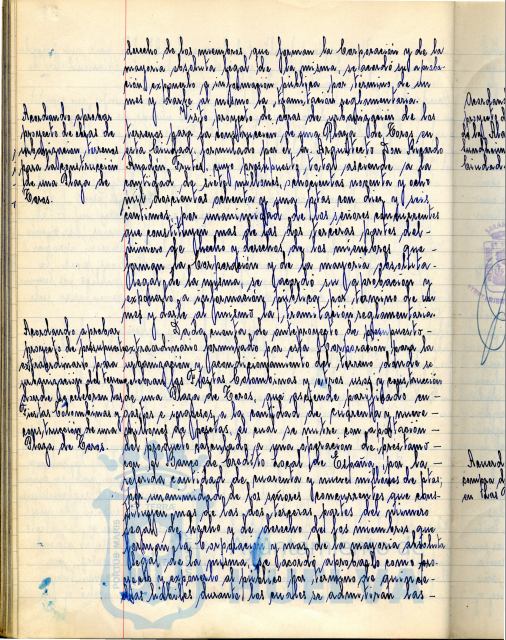 derecho de los miembros, que forman la Corporación y de la
mayoria absoluta legal de la misma, se acordó su aproba-
ción exponerlo a información pública por termino de un
mes y darle al mismo la tramitación reglamentaria.
Acordando aprobar
proyecto de obras de
terrenos
para la construcción
de una Plaza de
Toros.
Visto proyecto de obras de urbanización de los
terrenos para la construcción de una Plaza de Toros en
esta Ciudad, formulado por el Sr. Arquitecto Don Ricardo
Anadón Frutos, cuyo presupuesto total asciende a la
cantidad de siete millones, noventa y ocho
mil doscientas ochenta y una ptas con diez y seis
centimos, por unanimidad de los señores concurrentes
que constituyen mas de las dos terceras partes del
número de hecho y derecho de los miembros que
forman la Corporación y de la mayoria absoluta
legal de la misma, se acordó su aprobación y
exponerlo a información pública por termino de un
mes y darle al mismo la tramitación reglamentaria.
Acordando aprobar
proyecto de presupuesto
extraordinario para
urbanización del terreno
donde se celebran las
Fiestas Colombinas y
construcción de una
Plaza de Toros.
Dada cuenta de anteproyecto de presupuesto
extraordinario formulado por esta Corporación para la
urbanización y acondicionamiento del terreno donde se
celebran las Fiestas Colombinas y otros usos y construcción
de una Plaza de Toros, que asciende nivelado en
gastos e ingresos, a la cantidad de cincuenta y nueve
millones de pesetas, el cual se nutre con aportación
del producto de una operación de prestamo
con el Banco de Crédito Local de España, por la
referida cantidad de cuarenta y nueve millones de ptas,
por unanimidad de los señores concurrentes que cons-
tituyen mas de las dos terceras partes del número
legal de hecho y de derecho de los miembros que
forman la Corporación y mas de la mayoria absoluta
legal de la misma, se acordó aprobarlo como pro-
yecto y exponerlo al público por termino de quince
dias hábiles durante los cuales se admitirán las
Acordando
proyecto de
Ciudad.
Acuerdo
compra de